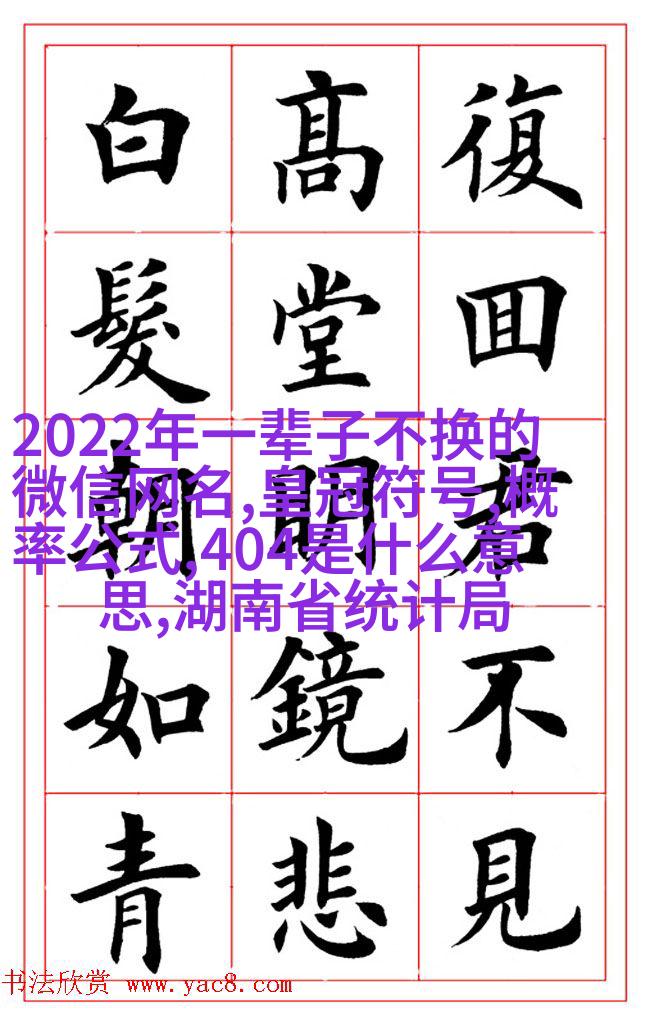 復囬君不見
髙堂明鏡悲
白髮朝如青
2022年一辈子不换的
微信网名,皇冠符号,概
率公式,404是什么意
思,湖南省统计局
书法欣赏 www.yac8.com